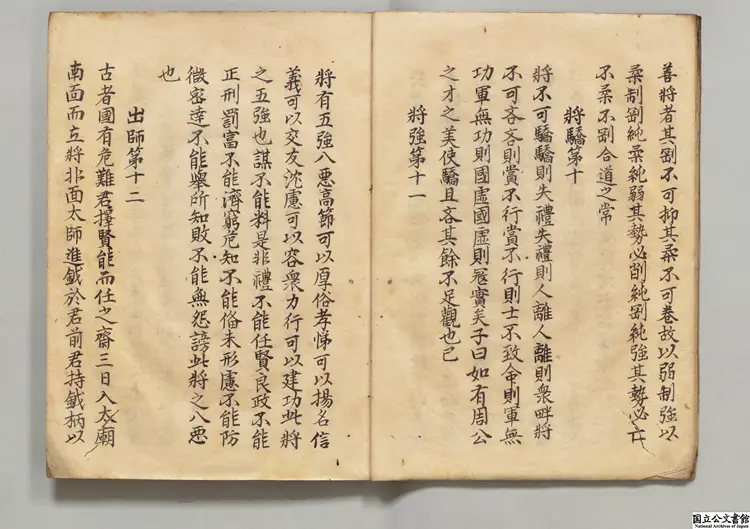 善將者其剛不可抑其柔不可卷故以弱制強以
柔制剛純柔純弱其勢必削純剛純強其勢必亡
不柔不剛合道之常
將驕第十
將不可驕驕則失禮失禮則人離人離則衆畔將
不可吝吝則賞不行賞不行則士不致命則軍無
功軍無功則國虛國虛則寇實矣子曰如有周公
之才之美使驕且吝其餘不足觀也已
將強第十一
將有五強八悪高節可以厚俗孝悌可以揚名信
義可以交友沈慮可以容衆力行可以建功此將
之五強也謀不能料是非禮不能任賢良政不能
正刑罰富不能濟窮危知不能俻未形慮不能防
微密達不能舉所知敗不能無怨謗此將之八悪
也
出師第十二
古者國有危難君擇賢能而任之齋三日入太廟
南面而立將北面太師進鉞於君前君持鉞柄以
国立公文書館
National Archives of Japan